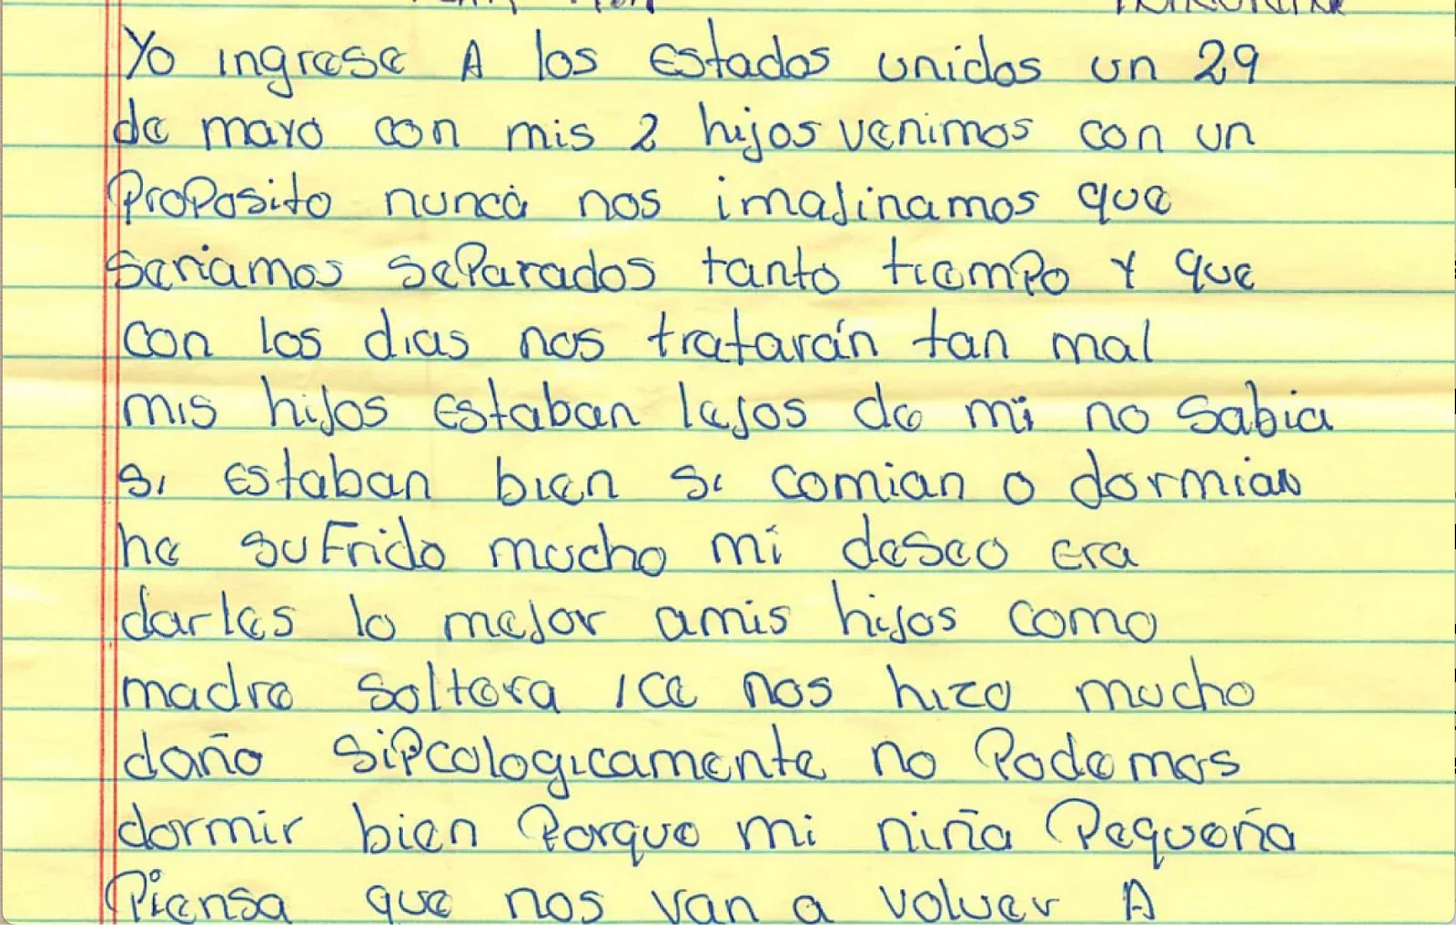 Yo ingrese A los Estados unidos un 29
de mayo con mis 2 hijos venimos con un
Proposito nunca nos imajinamos que
seriamos separados tanto tiempo y que
con los dias nos trataran tan mal
mis hijos Estaban lejos de mi no sabia
si Estaban bien si comian o dormian
he sufrido mucho mi deseo era
darles lo mejor amis hijos como
madre soltera ICE nos hizo mucho
daño sipcologicamente no Podemos
dormir bien Porque mi niña Pequeña
Piensa que nos van a volver A